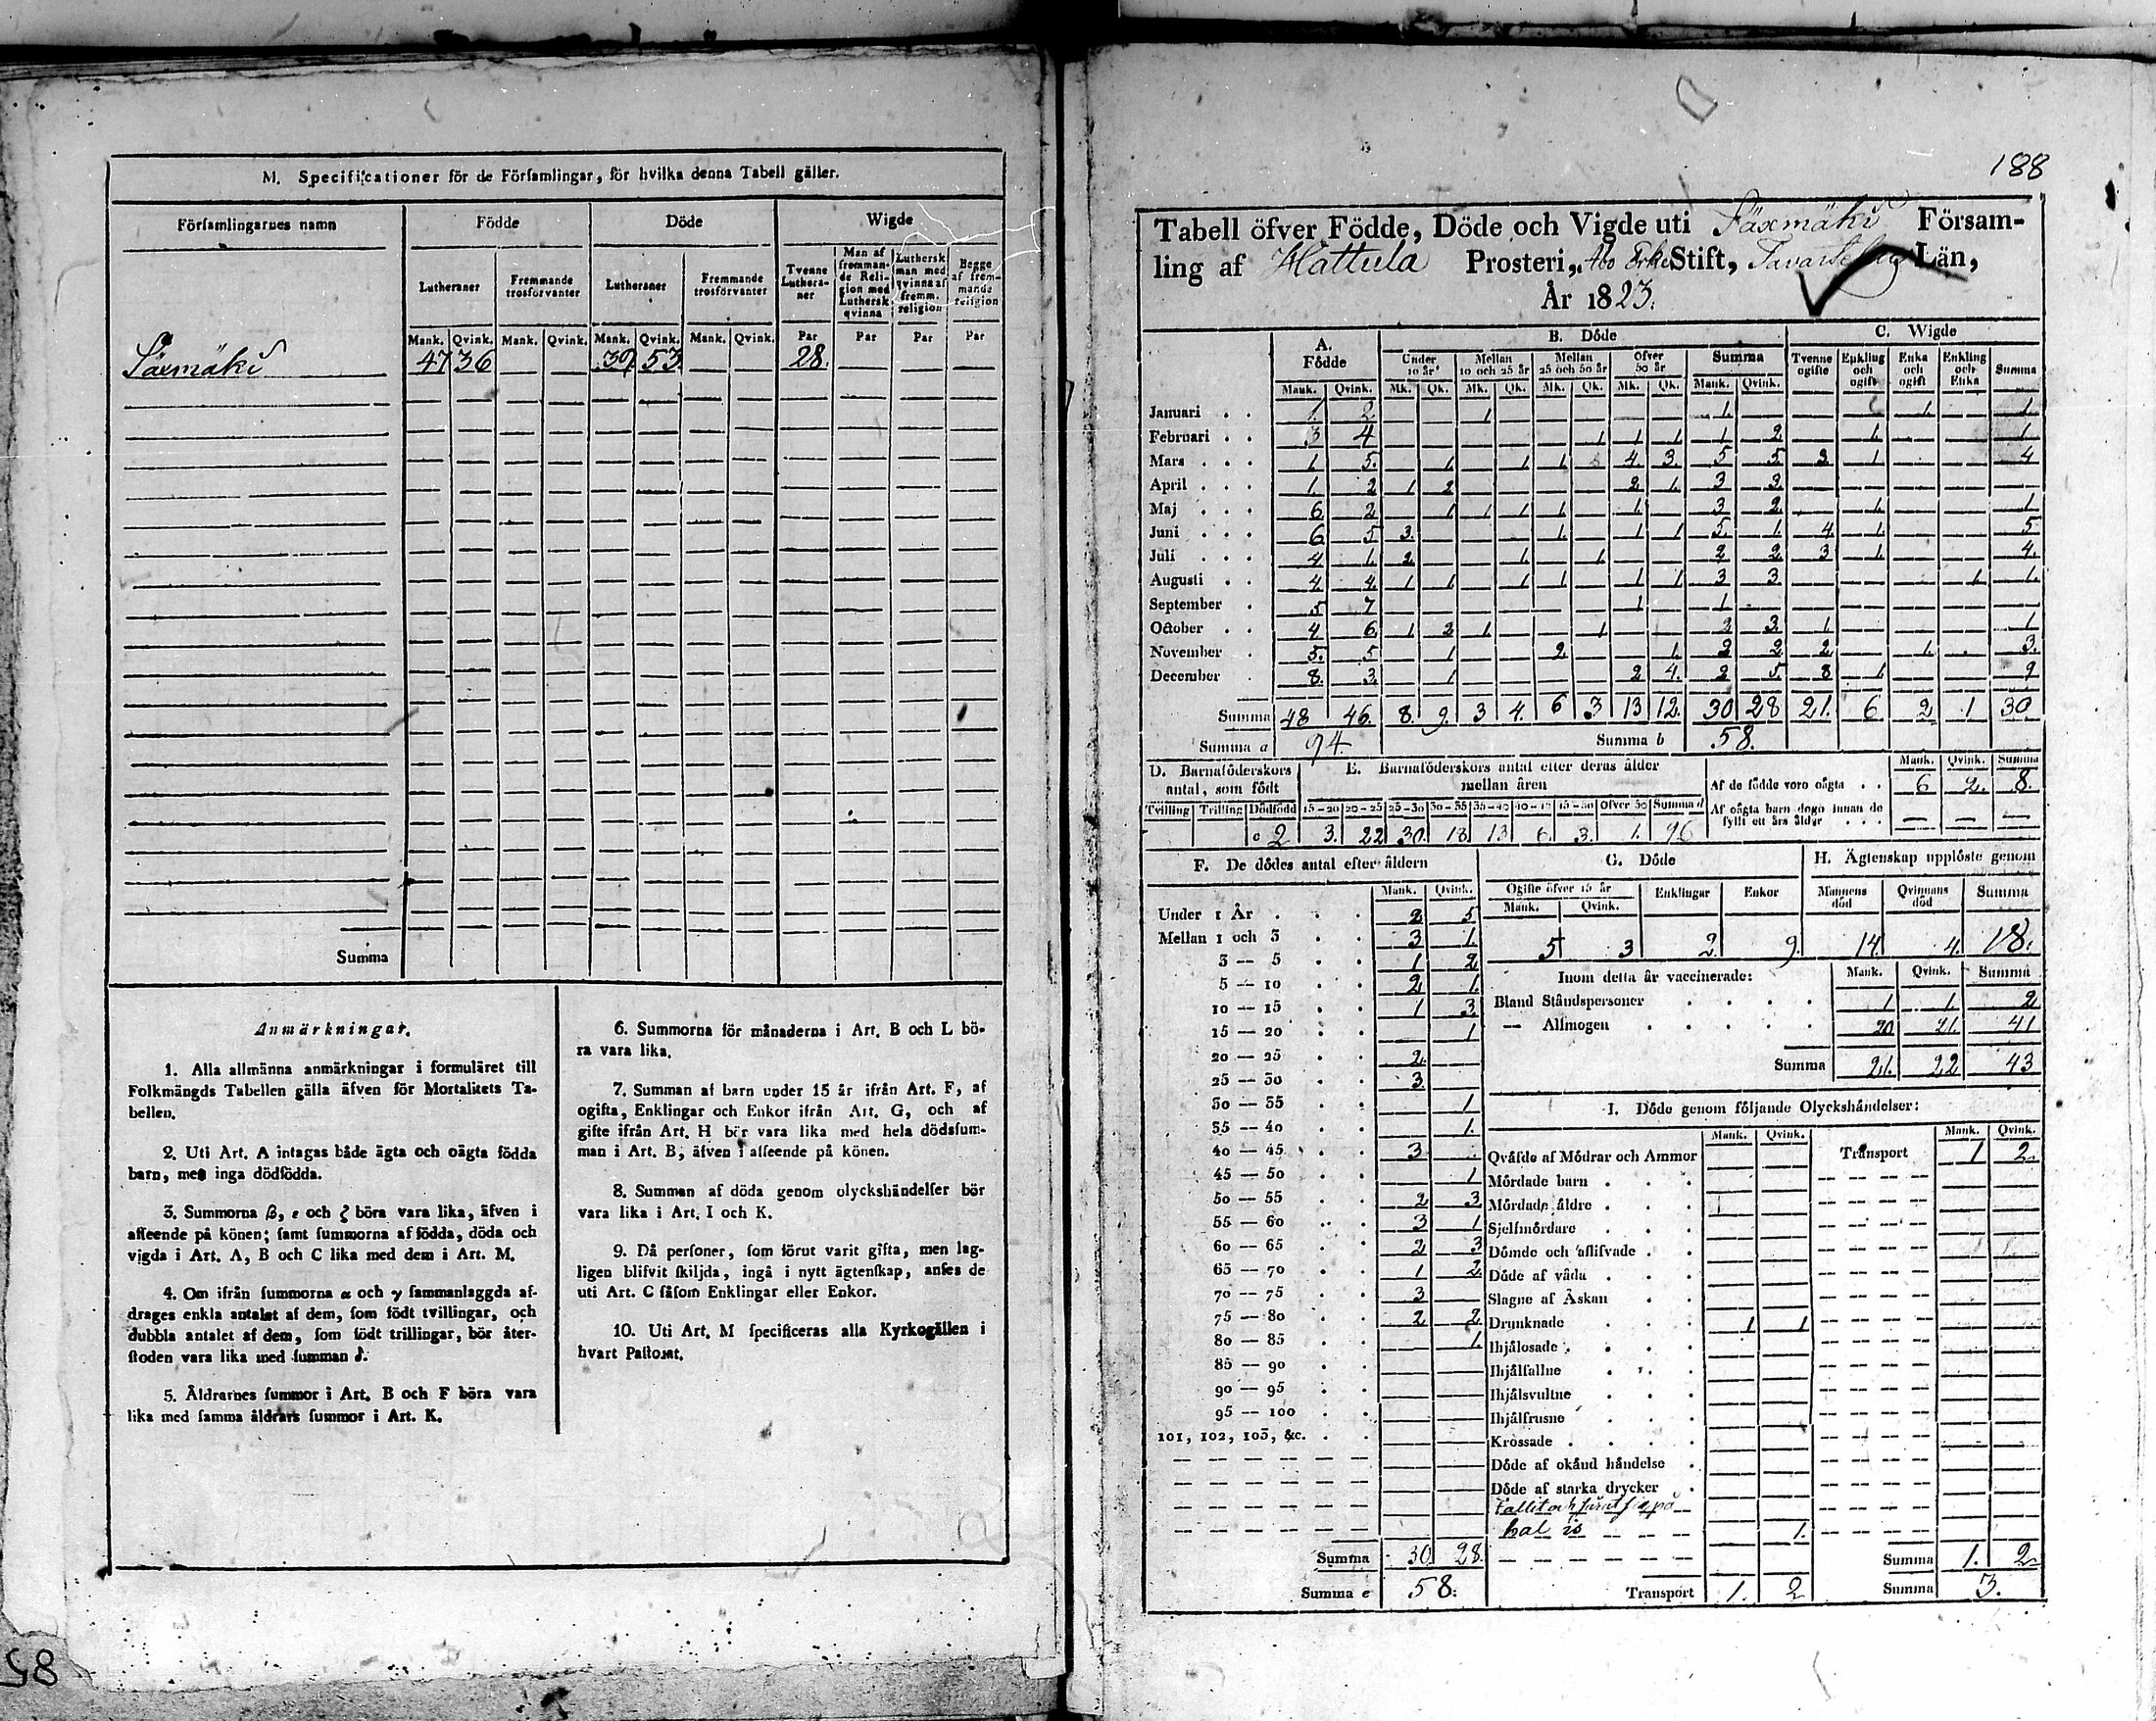 M. Specificationer för de Församlingar, för hvilka denna Tabell gäller.
Församlingarnes namn Födde Döde Wigde
Lutheraner Fremmande trosförvanter Lutheraner Fremmande trosförvanter Tvenne Lutheraner Man af fremmande Religion med Luthersk qvinna Luthersk man med qvinna af fremm. religion Begge af fremmande religion
Mank. Qvink. Mank. Qvink. Mank. Qvink. Mank. Qvink. Par Par Par Par
Säxmäki 47 36 39 53 28.
Summa
Anmärkningar.
1. Alla allmänna anmärkningar i formuläret till
Folkmängds Tabellen gälla äfven för Mortalitets Ta-
bellen.
2. Uti Art. A intagas både ägta och oägta födda
barn, men inga dödfödda.
3. Summorna β, ε och ζ böra vara lika, äfven i
afseende på könen; samt summorna af födda, döda och
vigda i Art. A, B och C lika med dem i Art. M.
4. Om ifrån summorna α och γ sammanlaggda af-
drages enkla antalet af dem, som födt tvillingar, och
dubbla antalet af dem, som födt trillingar, bör åter-
stoden vara lika med summan δ.
5. Åldrarnes summor i Art. B och F böra vara
lika med samma åldrars summor i Art. K.
6. Summorna för månaderna i Art. B och L bö-
ra vara lika.
7. Summan af barn under 15 år ifrån Art. F, af
ogifta, Enklingar och Enkor ifrån Art. G, och af
gifte ifrån Art. H bör vara lika med hela dödssum-
man i Art. B, äfven i afseende på könen.
8. Summan af döda genom olyckshändelser bör
vara lika i Art. I och K.
9. Då personer, som förut varit gifta, men lag-
ligen blifvit skiljda, ingå i nytt ägtenskap, anses de
uti Art. C såsom Enklingar eller Enkor.
10. Uti Art. M specificeras alla Kyrkogällen i
hvart Pastorat.
58
188
Tabell öfver Födde, Döde och Vigde uti Säxmäki Försam-
ling af Hattula Prosteri, Åbo Erke Stift, Tavastehus Län,
År 1823.
A. Födde B. Döde C. Wigde
Under 10 år Mellan 10 och 25 år Mellan 25 och 50 år Öfver 50 år Summa Tvenne ogifte Enkling och ogift Enka och ogift Enkling och Enka Summa
Mank. Qvink. Mk. Qk. Mk. Qk. Mk. Qk. Mk. Qk. Mank. Qvink.
Januari 1. 2 1 1. 1. 1.
Februari 3 4 1 1 1 1 2 1. 1.
Mars 1. 5. 1. 1 1. 4. 3. 5 5. 3 1 4
April 1. 2 1 2 2 1. 3 3
Maj 6 2 1 1 1 1. 1. 3 2. 1. 1
Juni 6 5 3. 1. 1 1 5. 1. 4. 1. 5
Juli 4 1. 2. 1 1. 2 2 3 1. 4.
Augusti 4 4. 1 1. 1 1 1 1 3 3 1. 1.
September 5 7 1 1
October 4 6. 1 2 1. 1 2 3. 1. 1
November 5. 5 1 2. 1. 2 2 2. 1. 3.
December 8. 3. 1 2 4. 2 5. 8 1. 9
Summa 48 46. 8. 9. 3 4. 6 3 13 12. 30 28 21. 6 2 1 30
Summa a 94. Summa b 58.
D. Barnaföderskors antal, som födt E. Barnaföderskors antal efter deras ålder mellan åren Mank. Qvink. Summa
Af de födde voro oägta 6 2. 8.
Tvilling Trilling Dödfödd 15—20 20—25 25—30 30—35 35—40 40—45 45—50 Öfver 50 Summa d
Af oägta barn dogo innan de fyllt ett års ålder
c 2 3. 22 30. 18 13 6. 3. 1. 96
F. De dödes antal efter åldern
Mank. Qvink.
Under 1 År 2 5
Mellan 1 och 3 3 1.
3 — 5 1 2
5 — 10 2 1.
10 — 15 1 3.
15 — 20 1
20 — 25 2.
25 — 30 3.
30 — 35 1
35 — 40 1.
40 — 45 3
45 — 50 1
50 — 55 2 3
55 — 60 3 1
60 — 65 2 3
65 — 70 1 2.
70 — 75 3
75 — 80 2 2
80 — 85 1.
85 — 90
90 — 95
95 — 100
101, 102, 103, &c.
Summa 30 28.
Summa e 58.
G. Döde H. Ägtenskap upplöste genom
Ogifte öfver 15 år Enklingar Enkor Mannens död Qvinnans död Summa
Mank. Qvink.
5 3 2 9. 14 4. 18.
Inom detta år vaccinerade: Mank. Qvink. Summa
Bland Ståndspersoner 1 1. 2
— Allmogen 20 21. 41
Summa 21. 22 43
I. Döde genom följande Olyckshändelser:
Mank. Qvink. Mank. Qvink.
Qväfde af Mödrar och Ammor Transport 1 2.
Mördade barn
Mördade äldre
Sjelfmördare
Dömde och aflifvade
Döde af våda
Slagne af Åskan
Drunknade 1 1
Ihjälosade
Ihjälfallne
Ihjälsvultne
Ihjälfrusne
Krossade
Döde af okänd händelse
Döde af starka drycker
Fallit och slagit sig på
hal is 1.
Summa 1. 2.
Transport 1. 2 Summa 3.